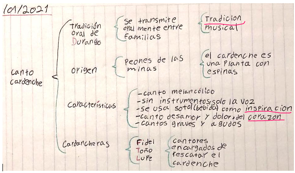 /01/2021
Canto cardenche
Tradición oral de Durango
Se transmite oralmente entre familias
Tradición musical
Origen
Peones de las minas
el cardenche es una planta con espinas
Características
-canto melancólico
-sin instrumentos solo la voz
-se usa sotol (bebida) como inspiración
-canto desamor y dolor del corazón
-cantos graves y agudos
Cardencheros
Fidel
Toño
Lupe
cantores encargados de rescatar el cardenche